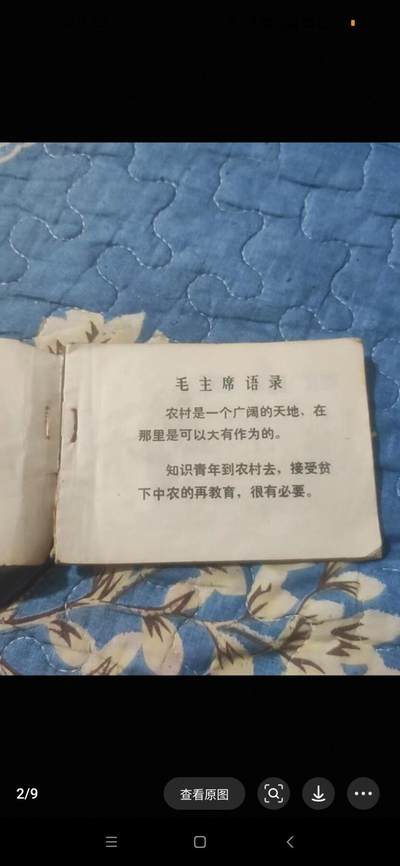 毛主席语录
农村是一个广阔的天地、在
那里是可以大有作为的。
知识青年到农村去，接受贫
下中农的再教育，很有必要。
2/9
查看原图